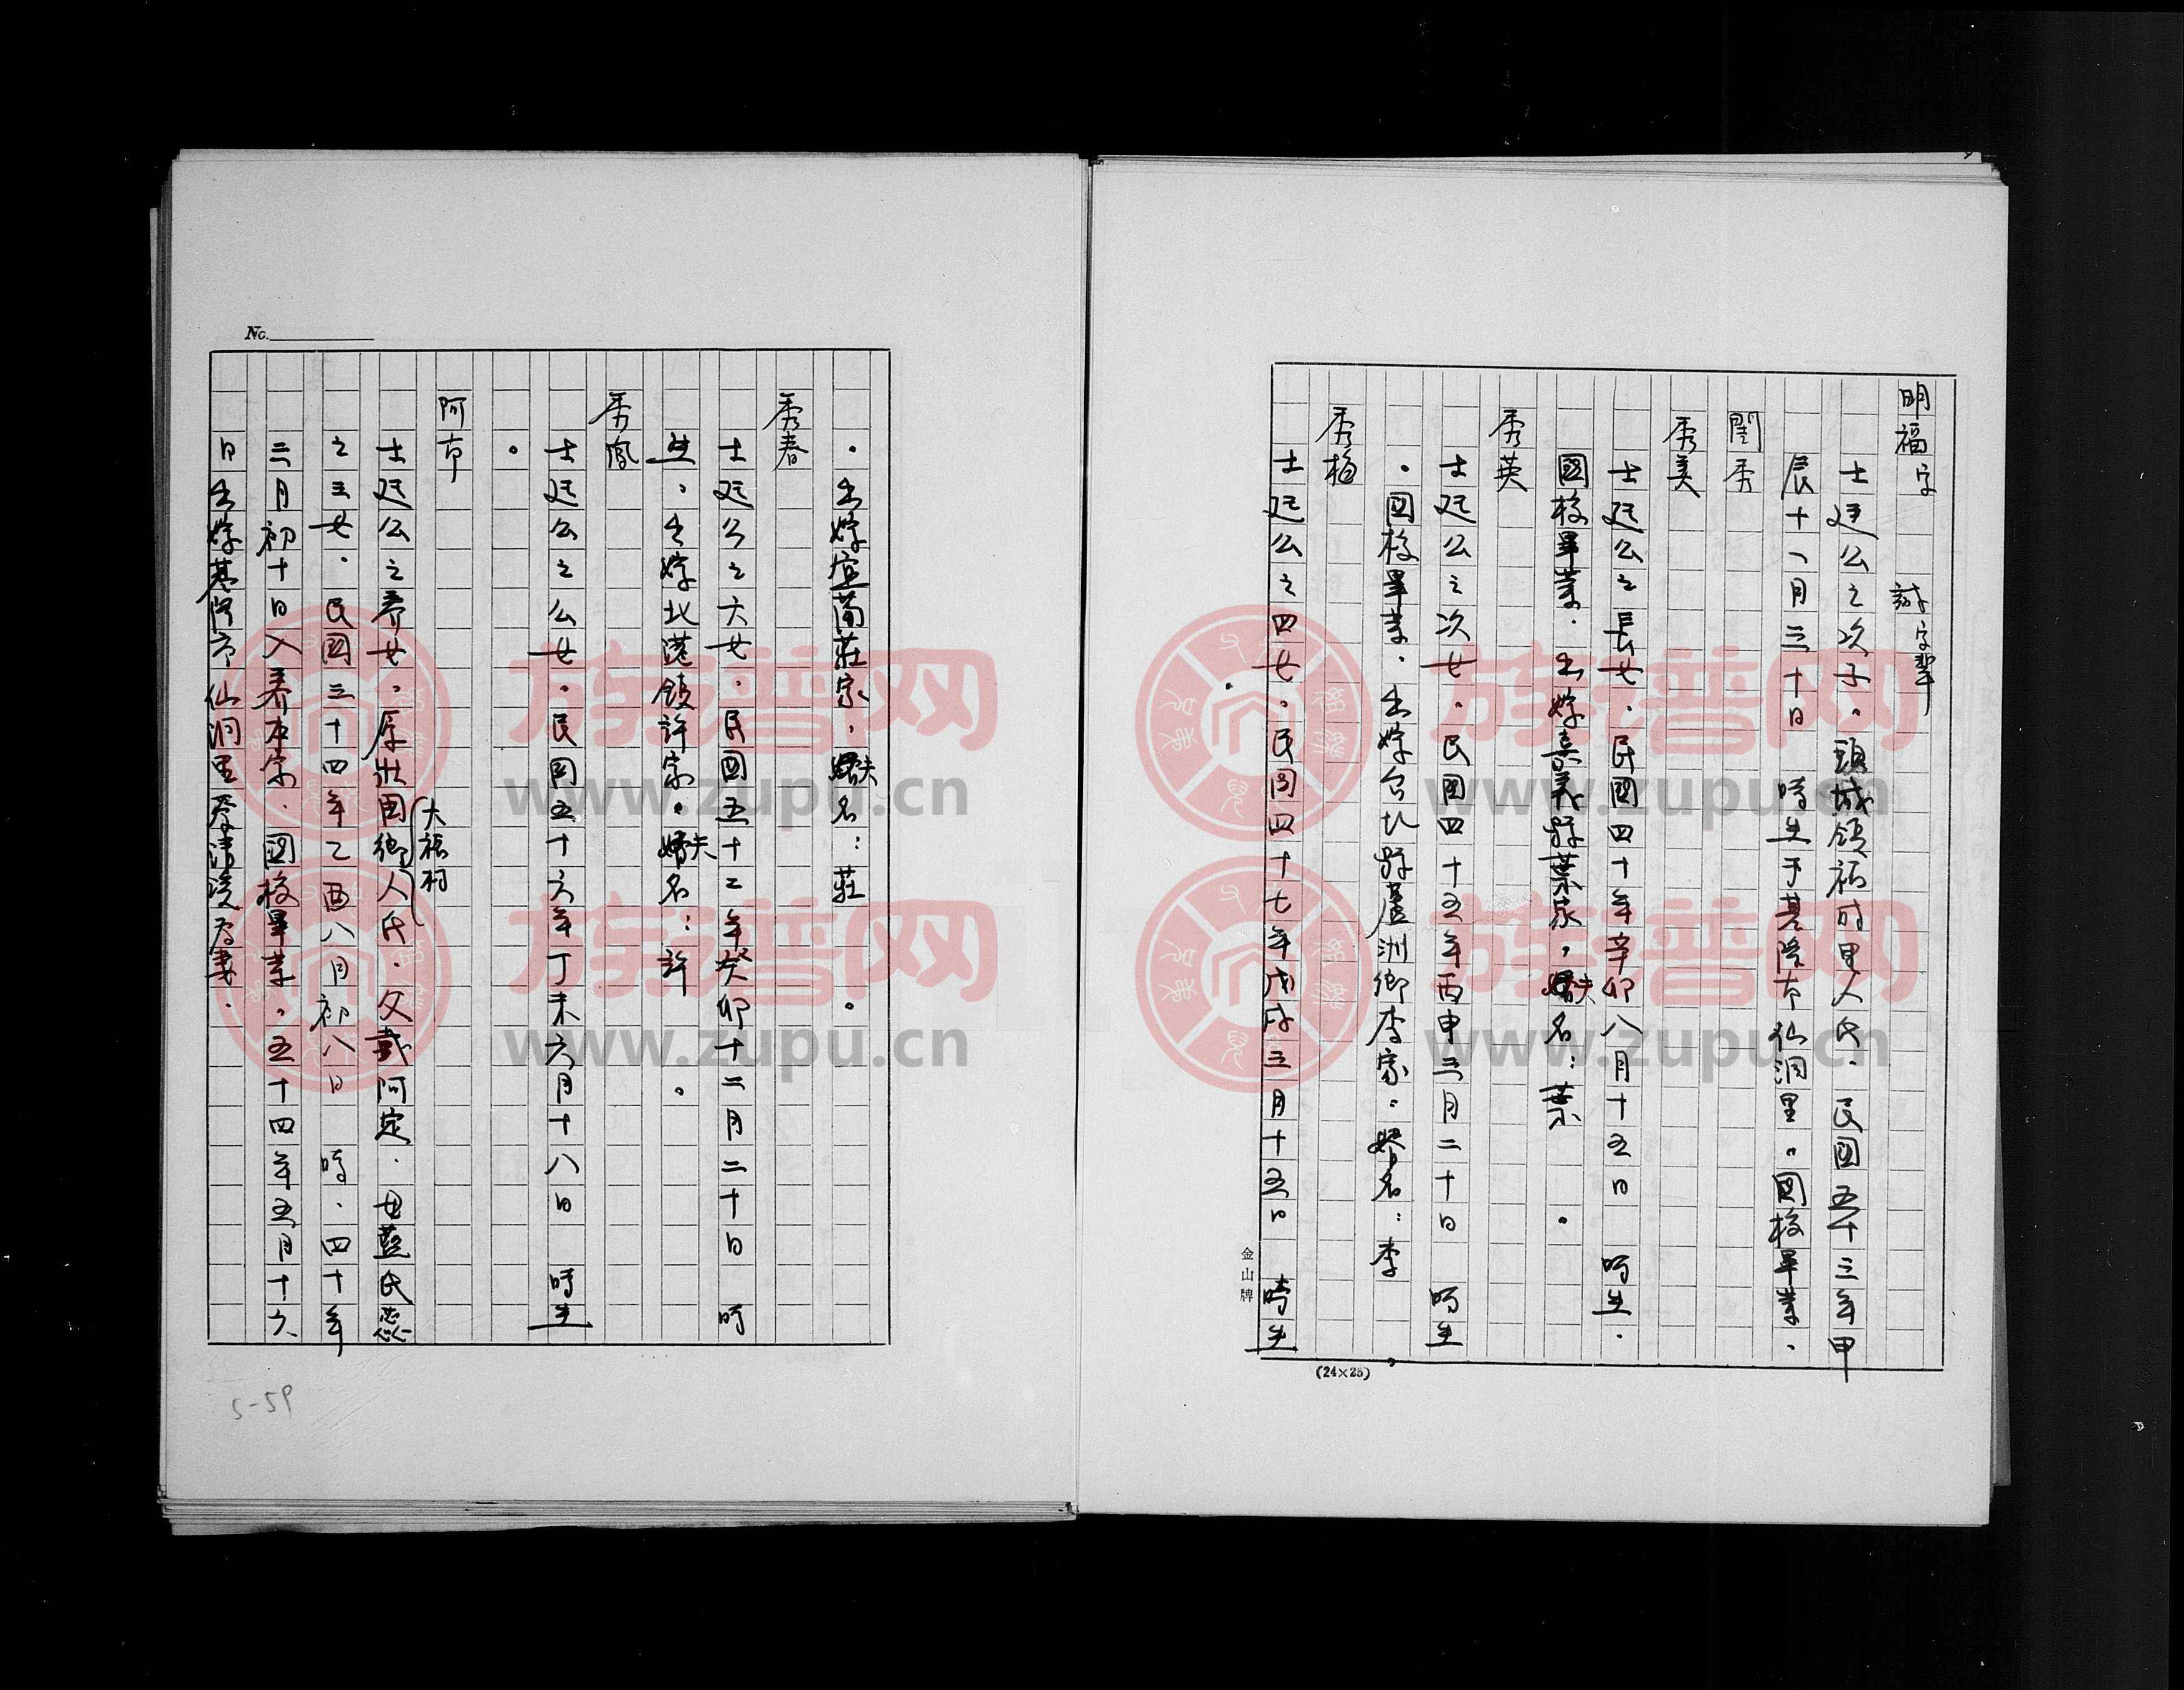 明福字 誠字輩
士廷公之次子．頭城鎮福时里人氏．民國五十三年甲
辰十一月三十日 時生于基隆市仙洞里．國校畢業．
閨秀
秀美
士廷公之長女．民國四十年辛卯八月十五日 時生．
國校畢業．出嫁嘉義縣葉家．夫名：葉 。
秀英
士廷公之次女．民國四十五年丙申三月二十日 時生
．國校畢業．出嫁台北縣蘆洲鄉李家．婿名：李 。
秀梅
士廷公之四女．民國四十七年戊戌三月十五日 時生
金山牌
(24×25)
No.
．出嫁宜蘭莊家．夫名：莊 。
秀春
士廷公之六女．民國五十二年癸卯十二月二十日 時
生．出嫁北港鎮許家．夫名：許 。
秀鳳
士廷公之么女．民國五十六年丁未六月十八日 時生
。
阿市
士廷公之養女．原壯圍鄉(大福村)人氏．父戴阿定．母藍氏
之三女．民國三十四年乙酉八月初八日 時．四十年
三月初十日入養本宗．國校畢業．五十四年五月十六
日出嫁基隆市仙洞里 清 為妻．
5-59
族谱网
www.zupu.cn
族谱网
www.zupu.cn
族谱网
www.zupu.cn
族谱网
www.zupu.cn